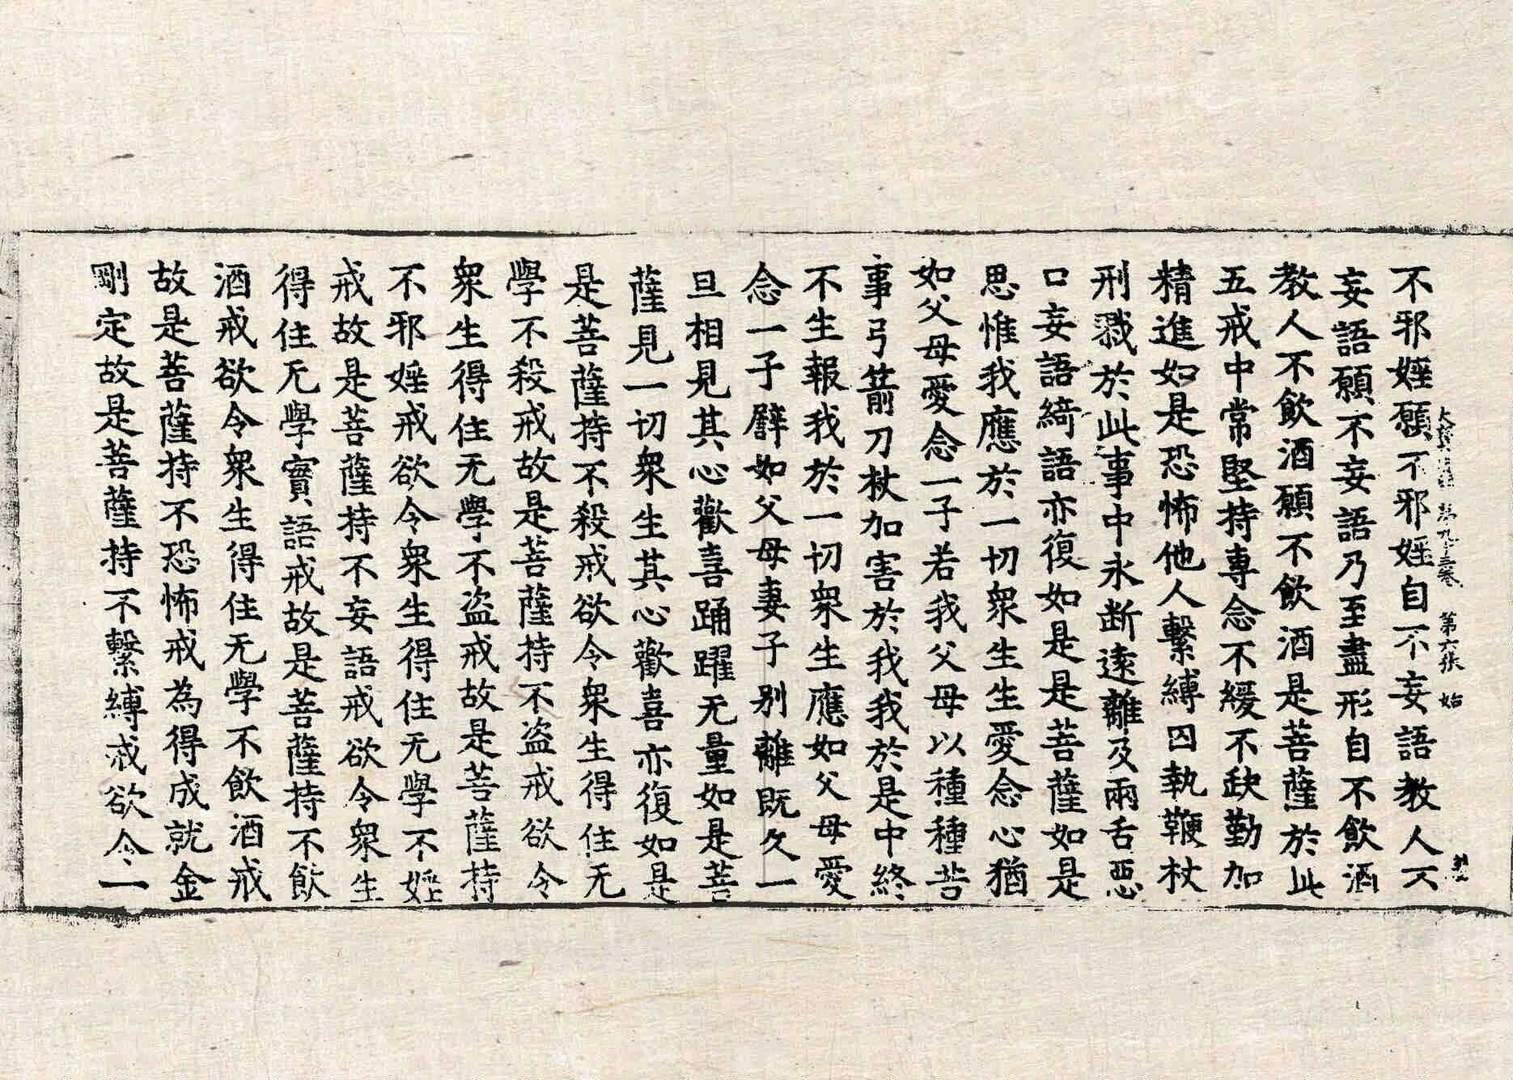 不邪婬願不邪婬自不妄語教人不
妄語願不妄語乃至盡形自不飲酒
教人不飲酒願不飲酒是菩薩於此
五戒中常堅持專念不緩不缺勤加
精進如是恐怖他人繫縛囚執鞭杖
刑戮於此事中永断遠離及兩舌惡
口妄語綺語亦復如是是菩薩如是
思惟我應於一切衆生生愛念心猶
如父母愛念一子若我父母以種種苦
事弓箭刀杖加害於我我於是中終
不生報我於一切衆生應如父母愛
念一子譬如父母妻子別離既久一
旦相見其心歡喜踊躍无量如是菩
薩見一切衆生其心歡喜亦復如是
是菩薩持不殺戒欲令衆生得住无
學不殺戒故是菩薩持不盜戒欲令
衆生得住无學不盜戒故是菩薩持
不邪婬戒欲令衆生得住无學不婬
戒故是菩薩持不妄語戒欲令衆生
得住无學實語戒故是菩薩持不飲
酒戒欲令衆生得住无學不飲酒戒
故是菩薩持不恐怖戒為得成就金
剛定故是菩薩持不繫縛戒欲令一
第六張 始